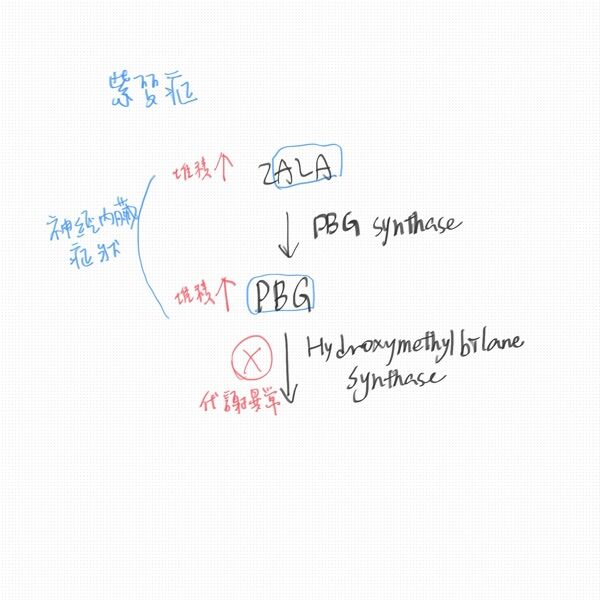 紫質症
堆積↑ 2ALA
PBG synthase
神經內臟
症狀
堆積↑ PBG
X
Hydroxymethylbilane
synthase
代謝異常